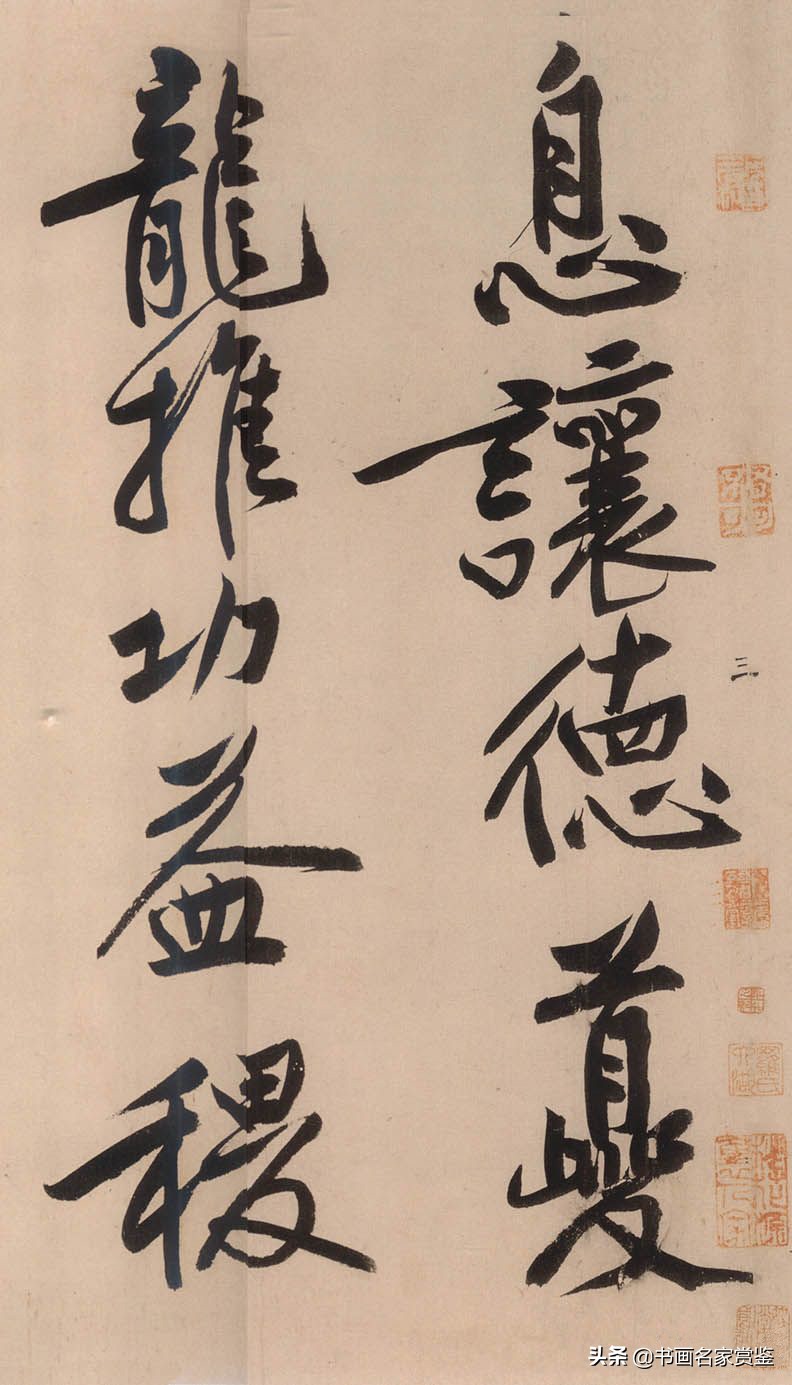 息讓德夔
龍推功益稷
三
头条 @书画名家赏鉴